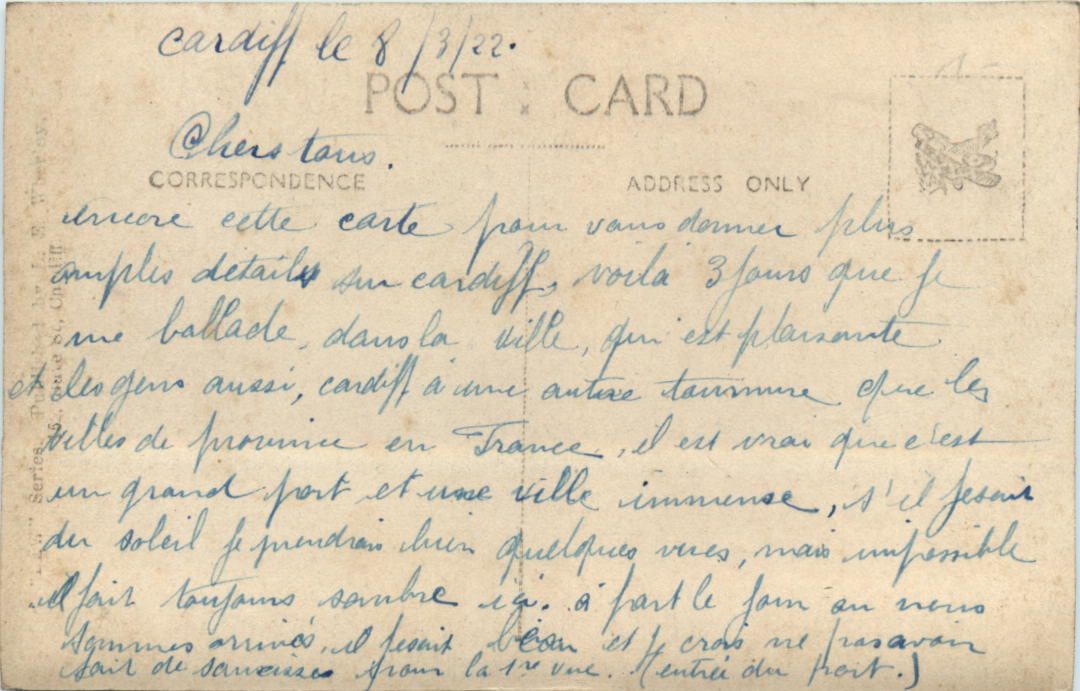 Cardiff le 8/3/22.
POST CARD
Chers tous.
CORRESPONDENCE
ADDRESS ONLY
encore cette carte pour vous donner plus
amples détails sur cardiff, voila 3 jours que je
me ballade, dans la ville, qui est plaisante
et les gens aussi, cardiff à une autre tournure que les
villes de province en France, il est vrai que c'est
un grand port et une ville immense, s'il fesait
du soleil je prendrais bien quelques vues, mais impossible
il fait toujours sombre ici. à part le jour ou nous
sommes arrivés, il fesait beau et je crois ne pas avoir
fait de saucisses pour la 1re vue. (entrée du port.)
Series. Published by L. E.
St, Cardiff